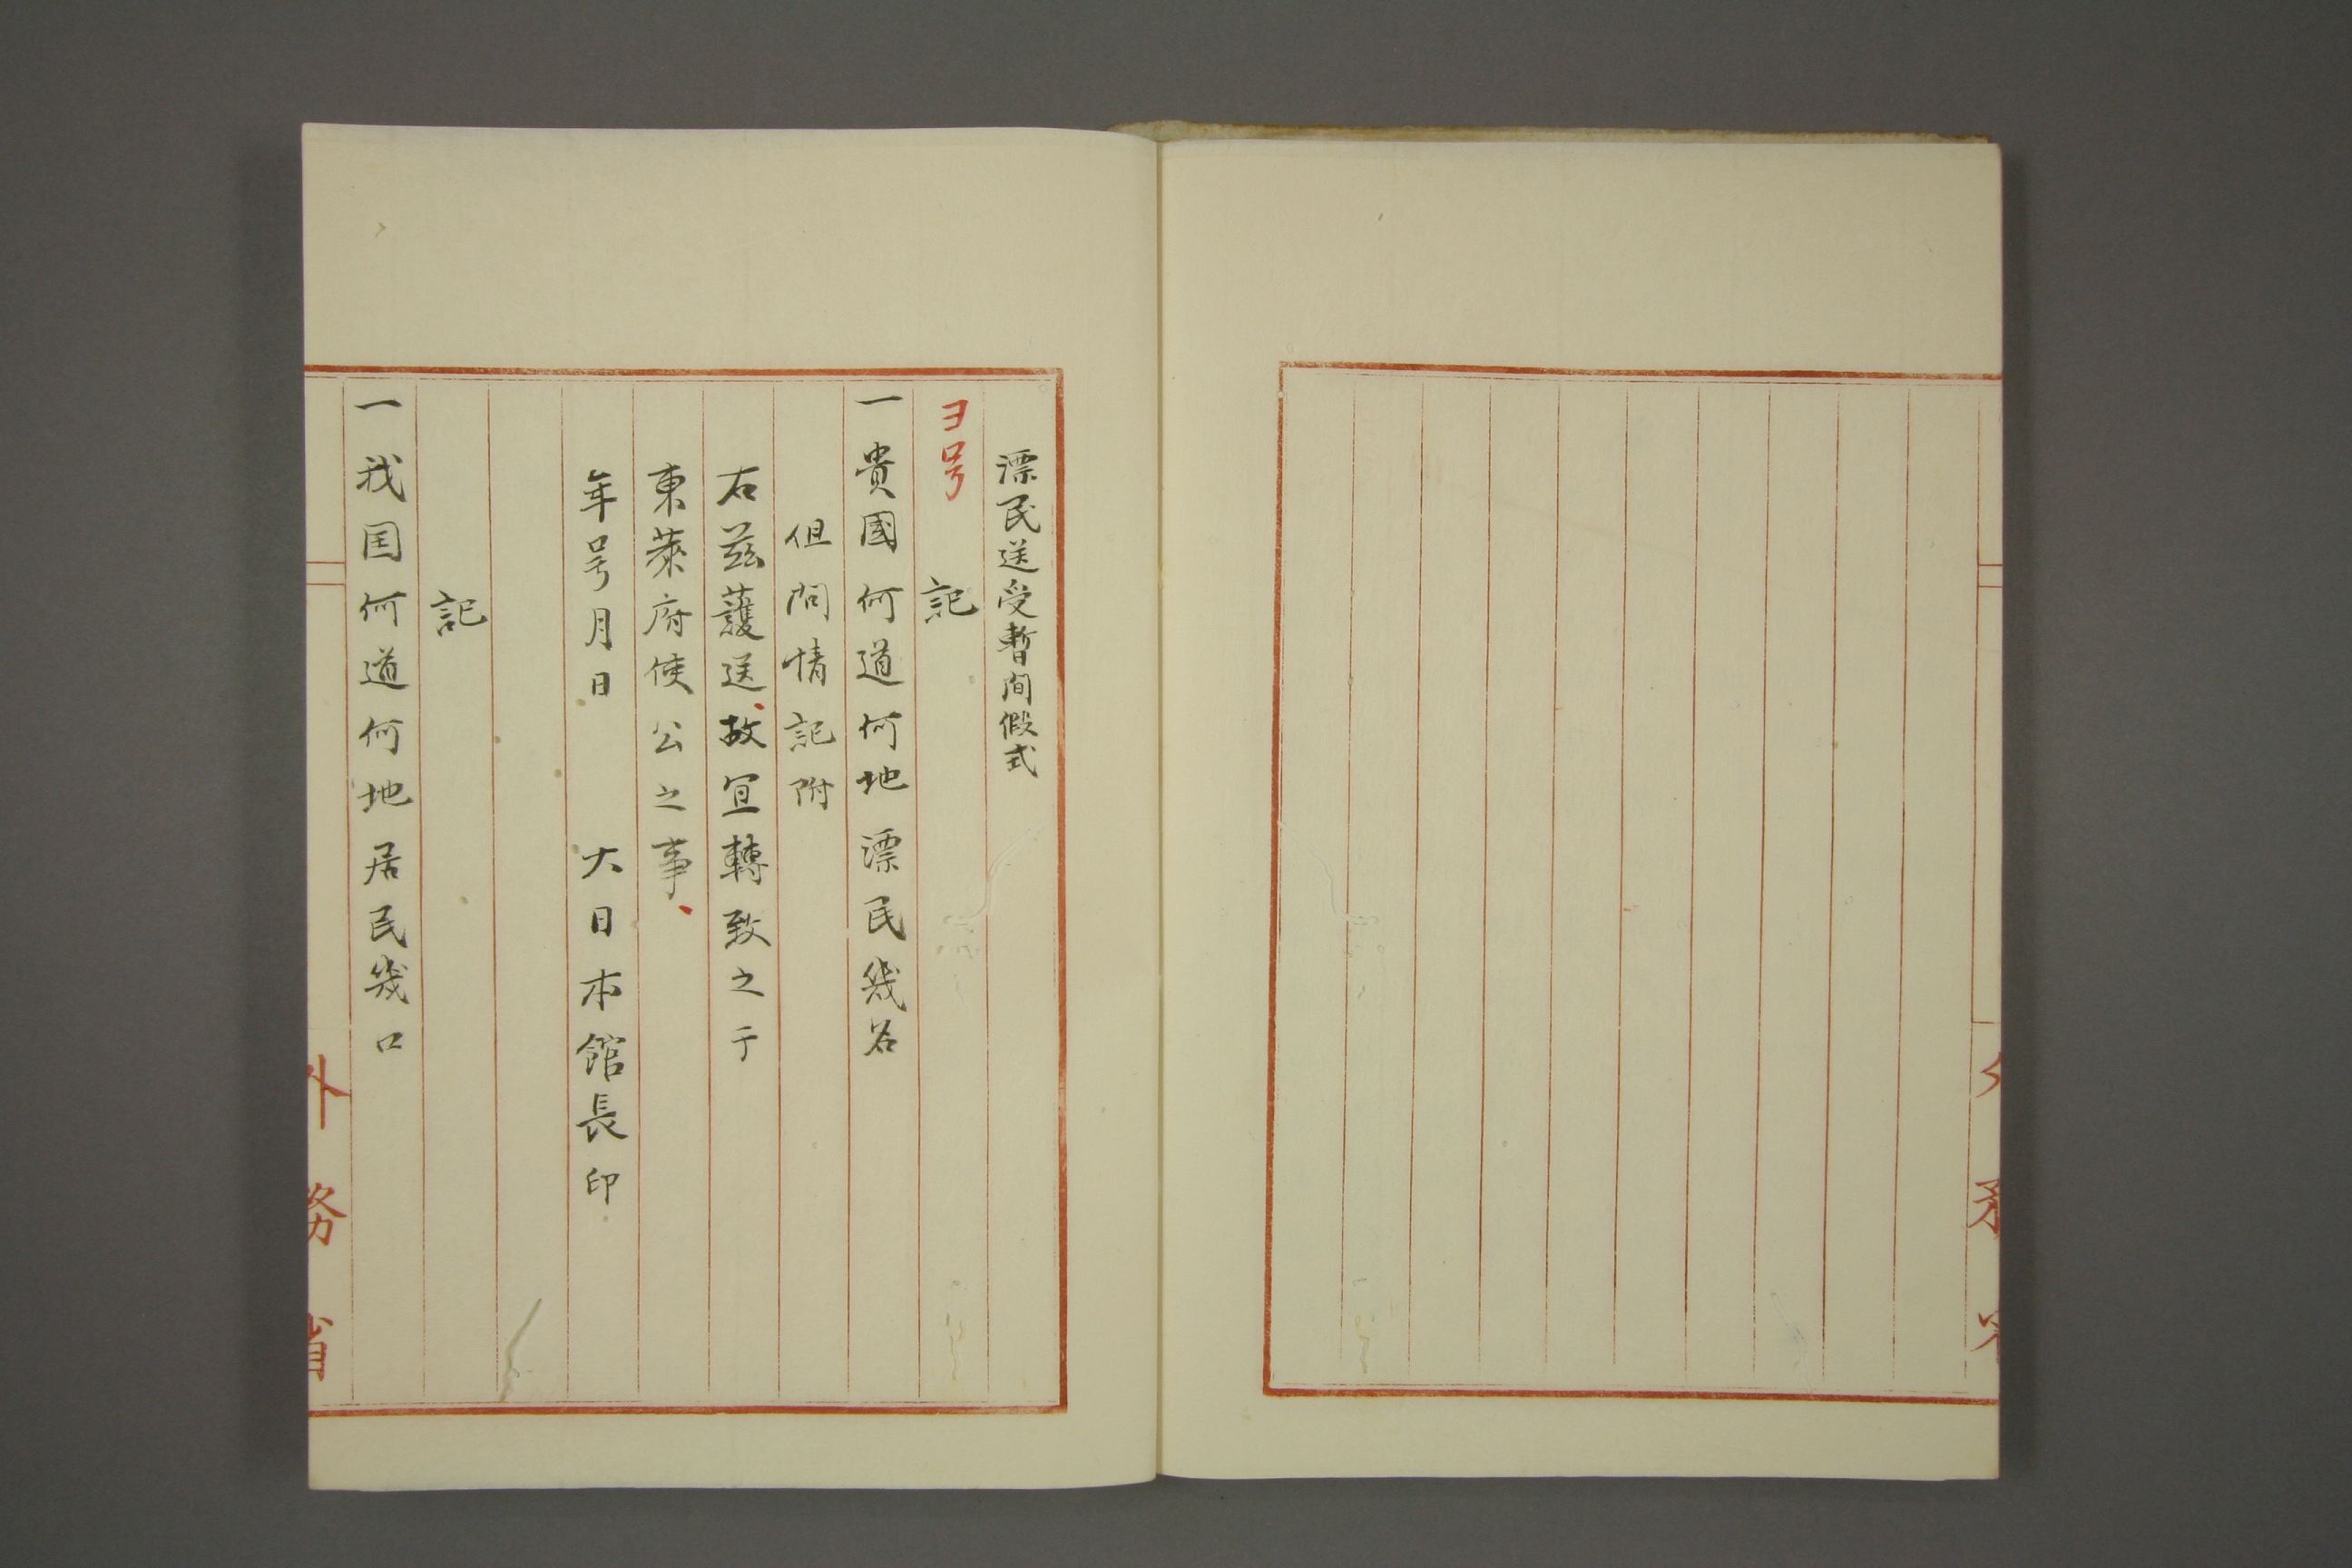 漂民送受暫間假式
ヨ号 記
一貴國何道何地漂民幾名
但問情記附
右茲護送、故宜轉致之于
東萊府使公之事、
年号月日 大日本館長印
記
一我国何道何地居民幾口
外務省